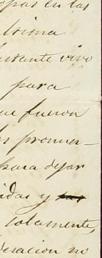 opas en las
ltima
bastante vivo
para
ue fueron
os pronun-
para dejar
idas y
totalmente,
deracion no